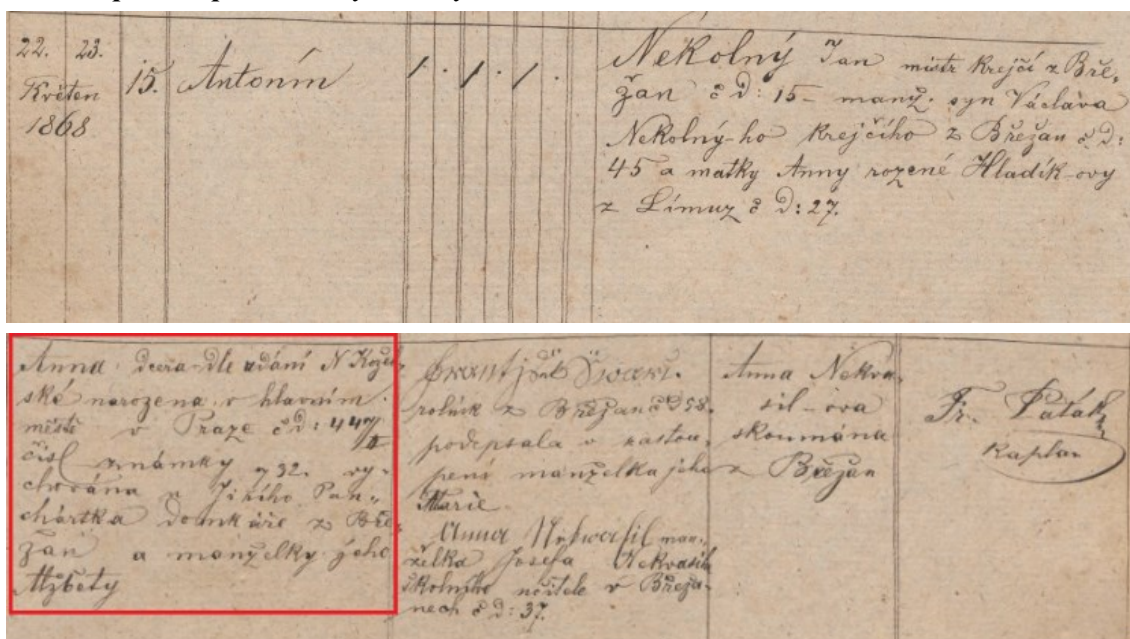 22. 23.
Květen
1868
15.
Antonín
1. 1. 1.
Nekolný Jan mistr krejčí z Bře,
žan č d: 15 - manž. syn Václava
Nekolný-ho krejčího z Břežan č. d:
45 a matky Anny rozené Hladík-ovy
z Limuz č d: 27.
Anna dcera dle udání N
ské narozena v hlavním
městě v Praze č d: 447/II
čisl známky 732. vy-
chována u Jiřího Pan-
chártka domkáře z Bře-
žan a manželky jeho
Alžběty
František Švarc.
rolník z Břežan č d 58.
podepsala v zastou,
pení manželka jeho
Marie
Anna Nekvasil man,
želka Josefa Nekvasila
školního učitele v Břeža-
nech č d: 37.
Anna Nekva,
sil-ova
skoumána
z Břežan
Fr. Paták
kaplan